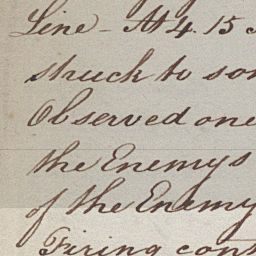 Line - At 4.15
struck to
Observed one
the Enemys
of the Enemy
Firing